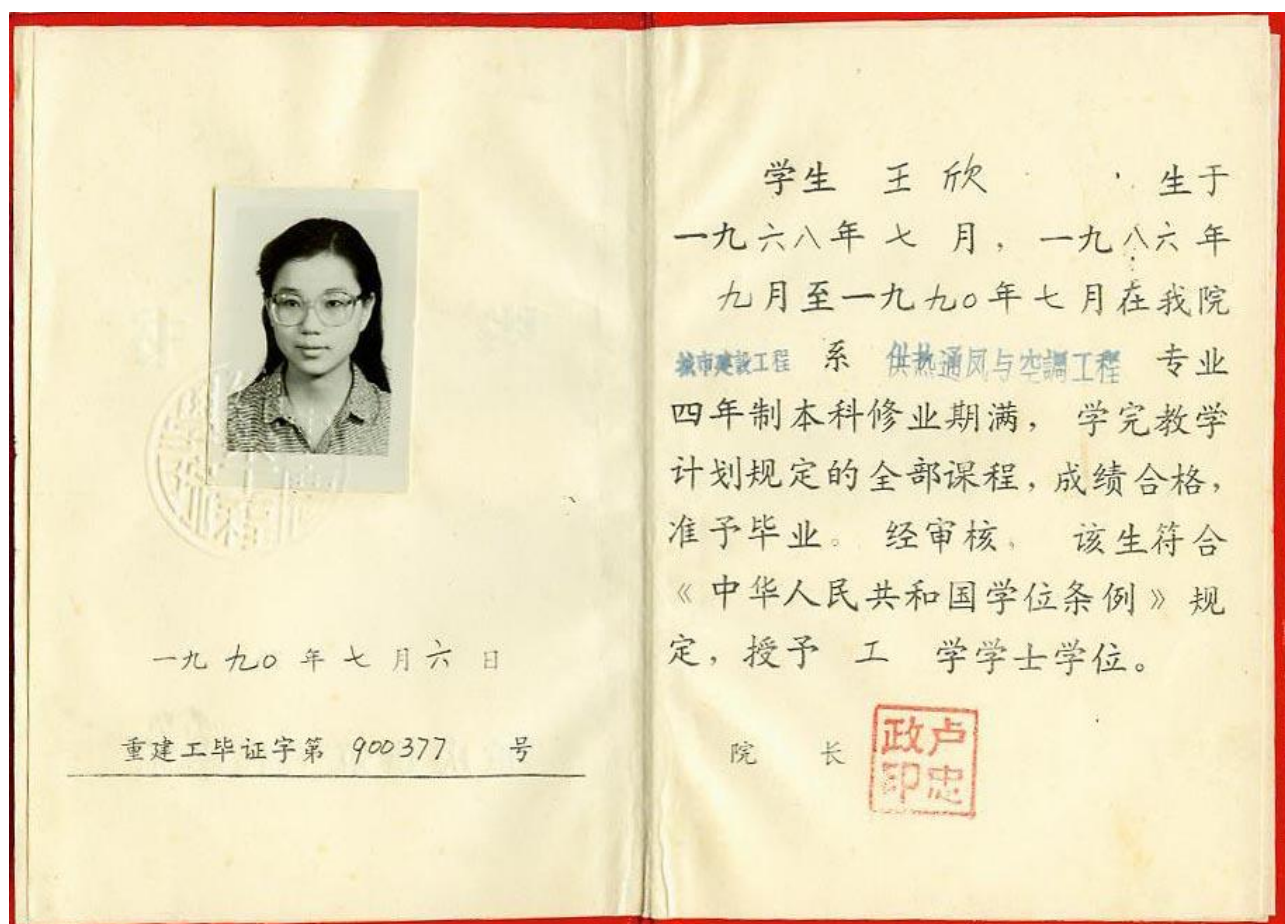 一九九〇年七月六日
重建工毕证字第 900377 号
学生 王欣 生于
一九六八年七月，一九八六年
九月至一九九〇年七月在我院
城市建設工程 系 供热通风与空調工程 专业
四年制本科修业期满，学完教学
计划规定的全部课程，成绩合格，
准予毕业。经审核，该生符合
《中华人民共和国学位条例》规
定，授予 工 学学士学位。
院 长
卢忠政印